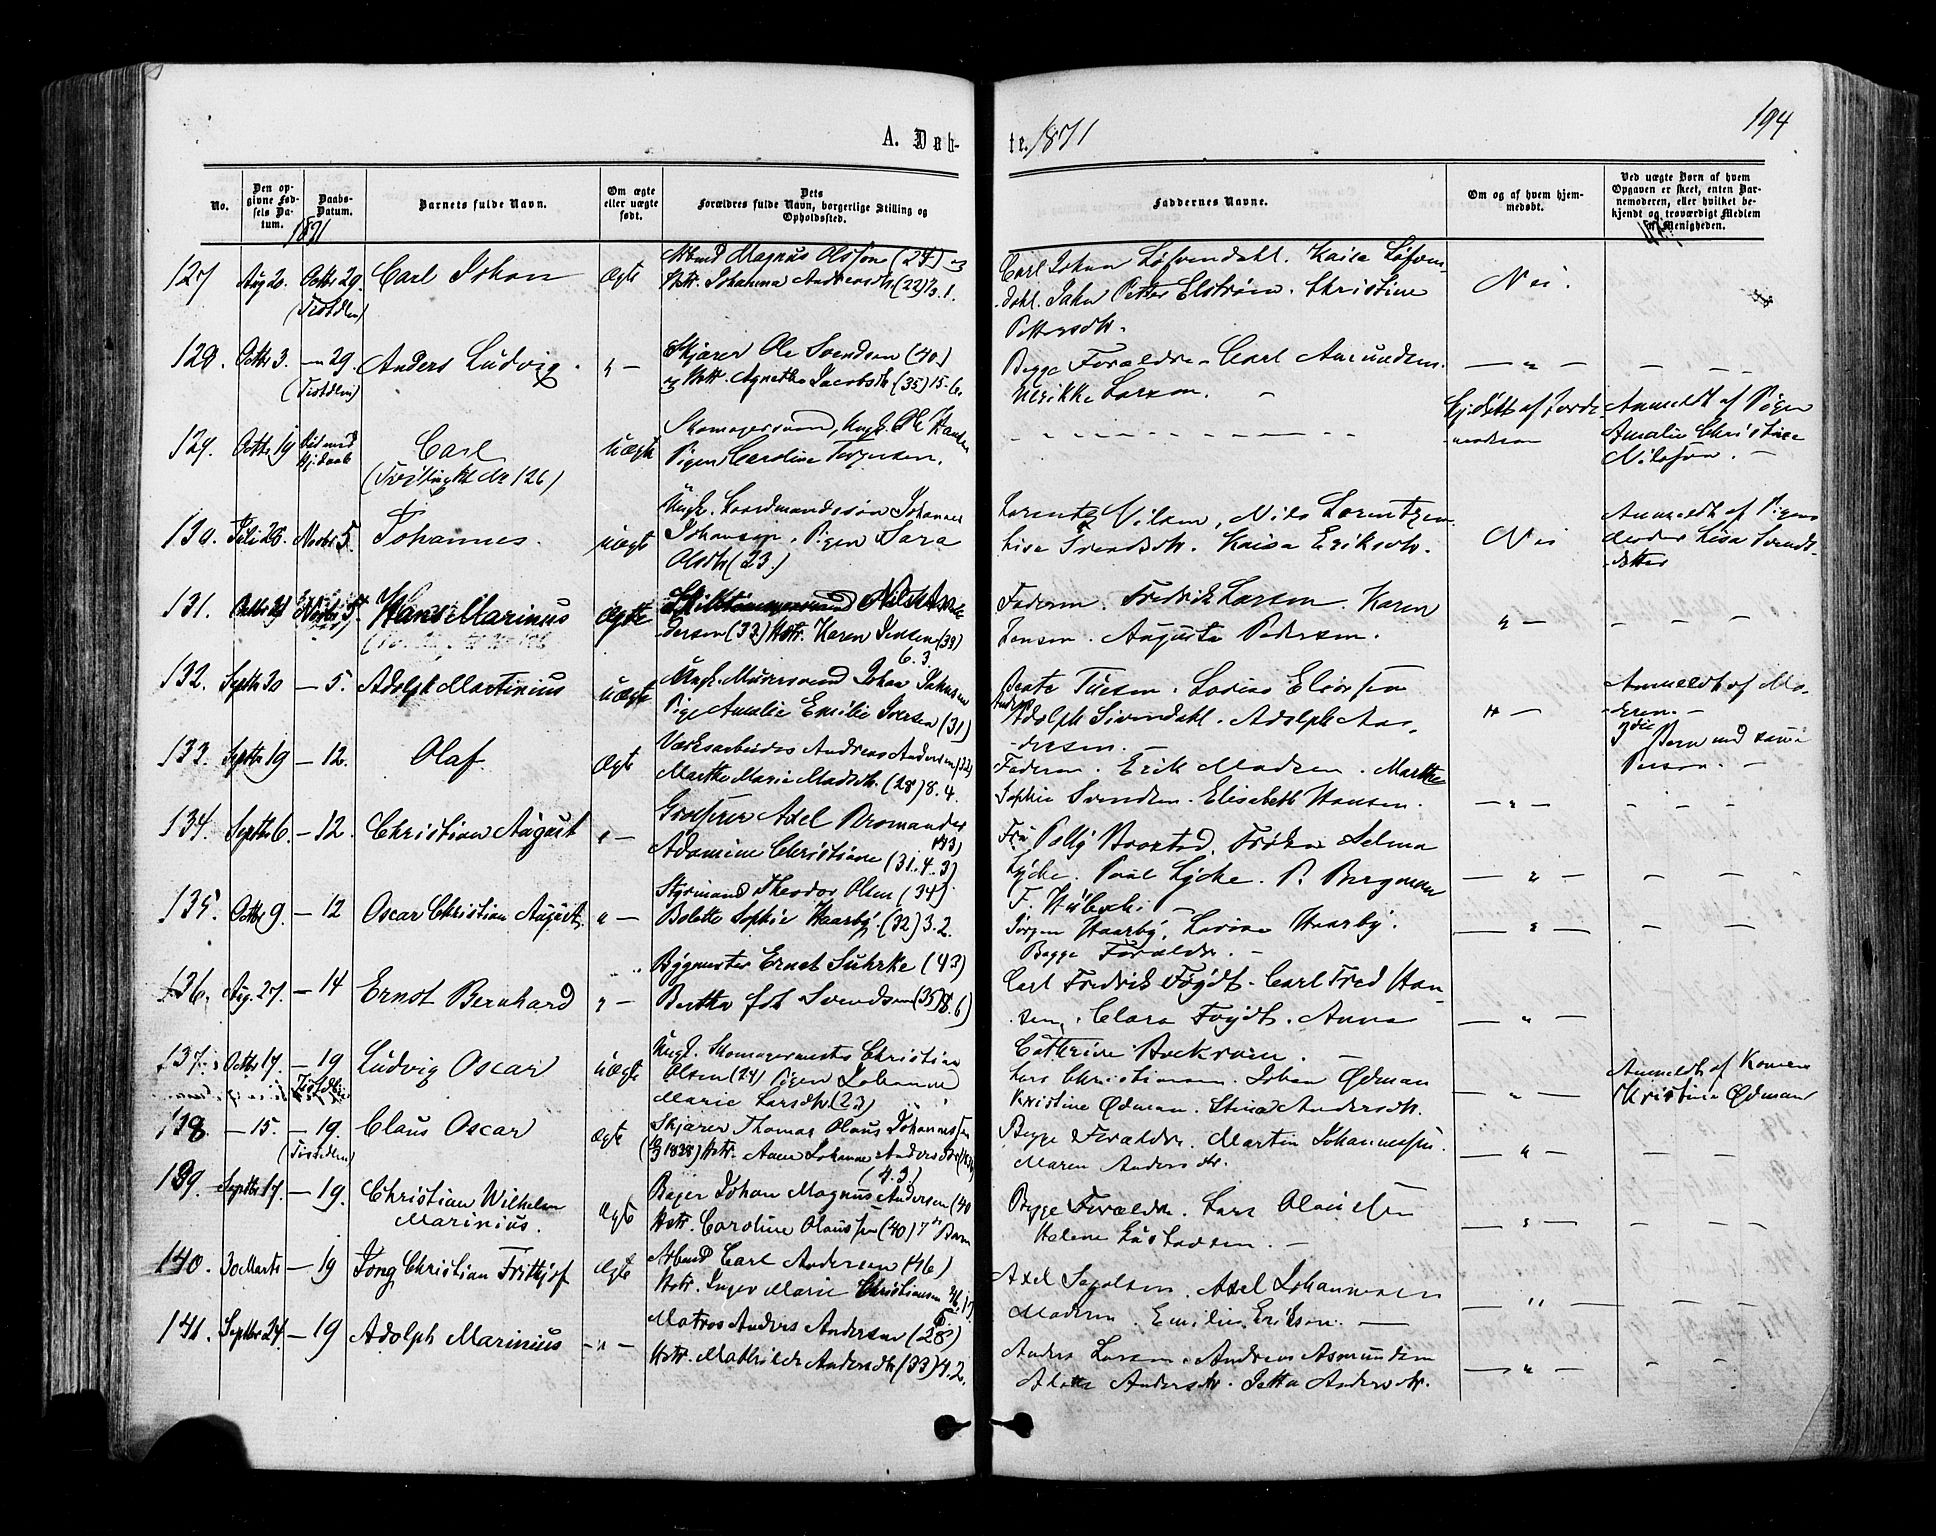 194
A. Døb-
te. 1871
No.
Den opgivne Fødsels Datum.
Daabs-Datum.
Barnets fulde Navn.
Om ægte eller uægte født.
Dets Forældres fulde Navn, borgerlige Stilling og Opholdssted.
Faddernes Navne.
Om og af hvem hjemmedøbt.
Ved uægte Børn af hvem Opgaven er skeet, enten Barnemoderen, eller hvilket bekjendt og troværdigt Medlem af Menigheden.
1871
127 Aug 20. Octbr 29. Carl Johan Ægte Magnus Olsson (24) og
Hstr. Johanna Andreasdtr. (22) 1.
(Tistdlen)
Carl Johan Løfvendahl. Kaisa Løfven-
dahl. Johan Petter Elstrøm. Christine
Pettersdtr.
Nei.
128. Octbr 3. — 29. Anders Ludvig. " — Skjærer Ole Svendsen (40)
og Hstr. Agnethe Jacobsdtr. (35) 15-6.
(Tistdlen)
Begge Forældre. Carl Amundsen.
Ulrikke Larsen. —
— " —
129. Octbr 19 Carl uægte Skomagersvend, Ungk. Ole Hansen
Pigen Caroline Torgersen.
(Tvilling til Nr 126)
Hjdøbt af Jorde-
moderen
Anmeldt af Pigen
Amalie Christine
Nilsen. —
130. Juli 28. Novbr 5. Johannes. uægte Ungk. Johannes
Johansen. Pigen Sara
Olsdtr (23.)
Lorentz Nilsen, Nils Lorentzen
Lisa Svendsdtr. Kaisa Eriksdtr.
Nei
Anmeldt af Pigens
Moder Lisa Svends-
datter
131. Octbr Novbr 5 Hans Marinus Ægte
dersen (33) Hstr. Karen Jensen (33)
6. 3.
Faderen. Fredrik Larsen. Karen
Jensen. Augusta Pedersen.
" —
132. Septbr 30 — 5. Adolph Martinius uægte Ungk. Muursvend Johan Johnsen
Pige Amalie Emilie Iversen (31)
Beate Lovise
Adolph Adolph An-
dersen. —
" —
Anmeldt af Mo-
deren. —
Barn med samme
Person. —
133. Septbr 19 — 12. Olaf. Ægte Værksarbeider Andreas Andersen (32)
Marthe Marie Madsdtr. (28) 8. 4.
Faderen. Erik Madsen. Marthe
Sophie Svendsen. Elisabeth Hansen.
— " —
134. Septbr 6. — 12. Christian August " — Grosserer Axel Bromander
(43)
Adamine Christiane (31. 4. 3)
Fru Polly Frøken Selma
Lycke. Poul Lycke. P. Bergman
— " —
135. Octbr 9. — 12 Oscar Christian August. " — Styrmand Theodor Olsen (34)
Bolette Sophie Haarby. (32) 3. 2.
Jørgen Haarby. Lovise Haarby.
Begge Forældre. —
— " —
136. Aug. 27. — 14 Ernst Bernhard " — Bygmester Ernst Suhrke (43)
Bertha fdt Svendsen (35)
Carl Fredrik Foydt. Carl Fred Han-
sen. Clara Foydt. Anna
Cathrine —
— " —
137. Octbr 17. — 19 Ludvig Oscar uægte Ungk. Skomagermester Christian
Olsen (24) Pigen Johanne
Marie Larsdtr. (23)
Tistdlen
Lars Christiansen. Johan Ødman
Kristine Ødman. Stina Andersdtr.
— " —
Anmeldt af Konen
Kristine Ødman
138. — 15. — 19. Claus Oscar Ægte Skjærer Thomas Olaus Johannessen
1838) Hstr. Anne Johanne Andersdtr
(4. 3)
(Tistedlen)
Begge Forældre. Martin Johannessen.
Maren Andersdtr.
— " —
139. Septbr 17. — 19. Christian Wilhelm
Marinius. Ægte Bager Johan Magnus Andersen (40
Hstr. Caroline Olaussen (40) 7de Barn
Begge Forældre. Lars Olaussen
Helene Gustavsen. —
— " —
140. 30 Marts — 19 Jong Christian Frithjof Ægte Arbmd Carl Andersen (46)
Hstr. Inger Marie Christiansen
Axel Axel Johannesen
Moderen. Emilie Eriksen. —
— " —
141. Septbr 24. — 19 Adolph Marinius — " — Matros Anders Andersen (28)
Hstr. Mathilde Andersdtr (33) 4. 2.
Anders Larsen. Andreas Asmundsen
Andersdtr. Jetta Andersdtr.
— " —